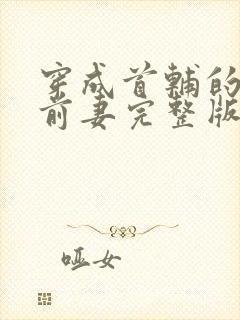 穿成首辅的
前妻完整版
哑女